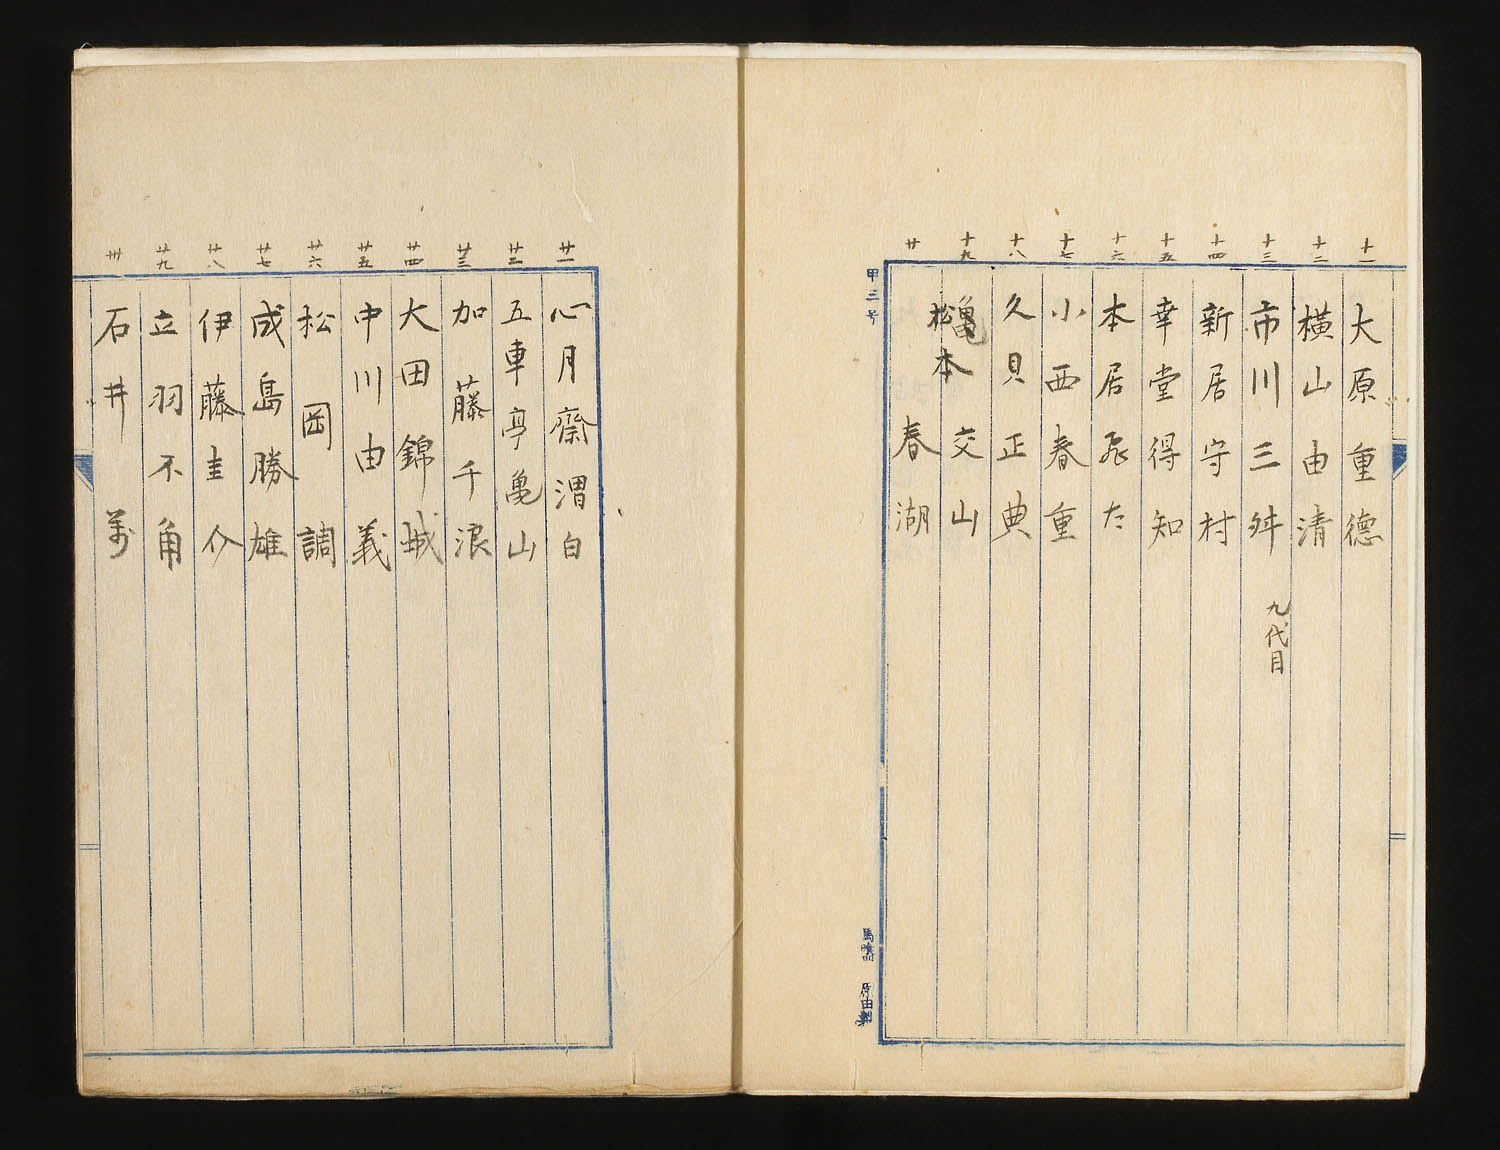 十一 大原重德
十二 橫山由清
十三 市川三舛 九代目
十四 新居守村
十五 幸堂得知
十六 本居
十七 小西春重
十八 久貝正典
十九 松本交山
廿 春湖
甲三号
馬喰町 原由製
廿一 心月齋渭白
廿二 五車亭亀山
廿三 加藤千浪
廿四 大田錦城
廿五 中川由義
廿六 松岡調
廿七 成島勝雄
廿八 伊藤圭介
廿九 立羽不角
卅 石井